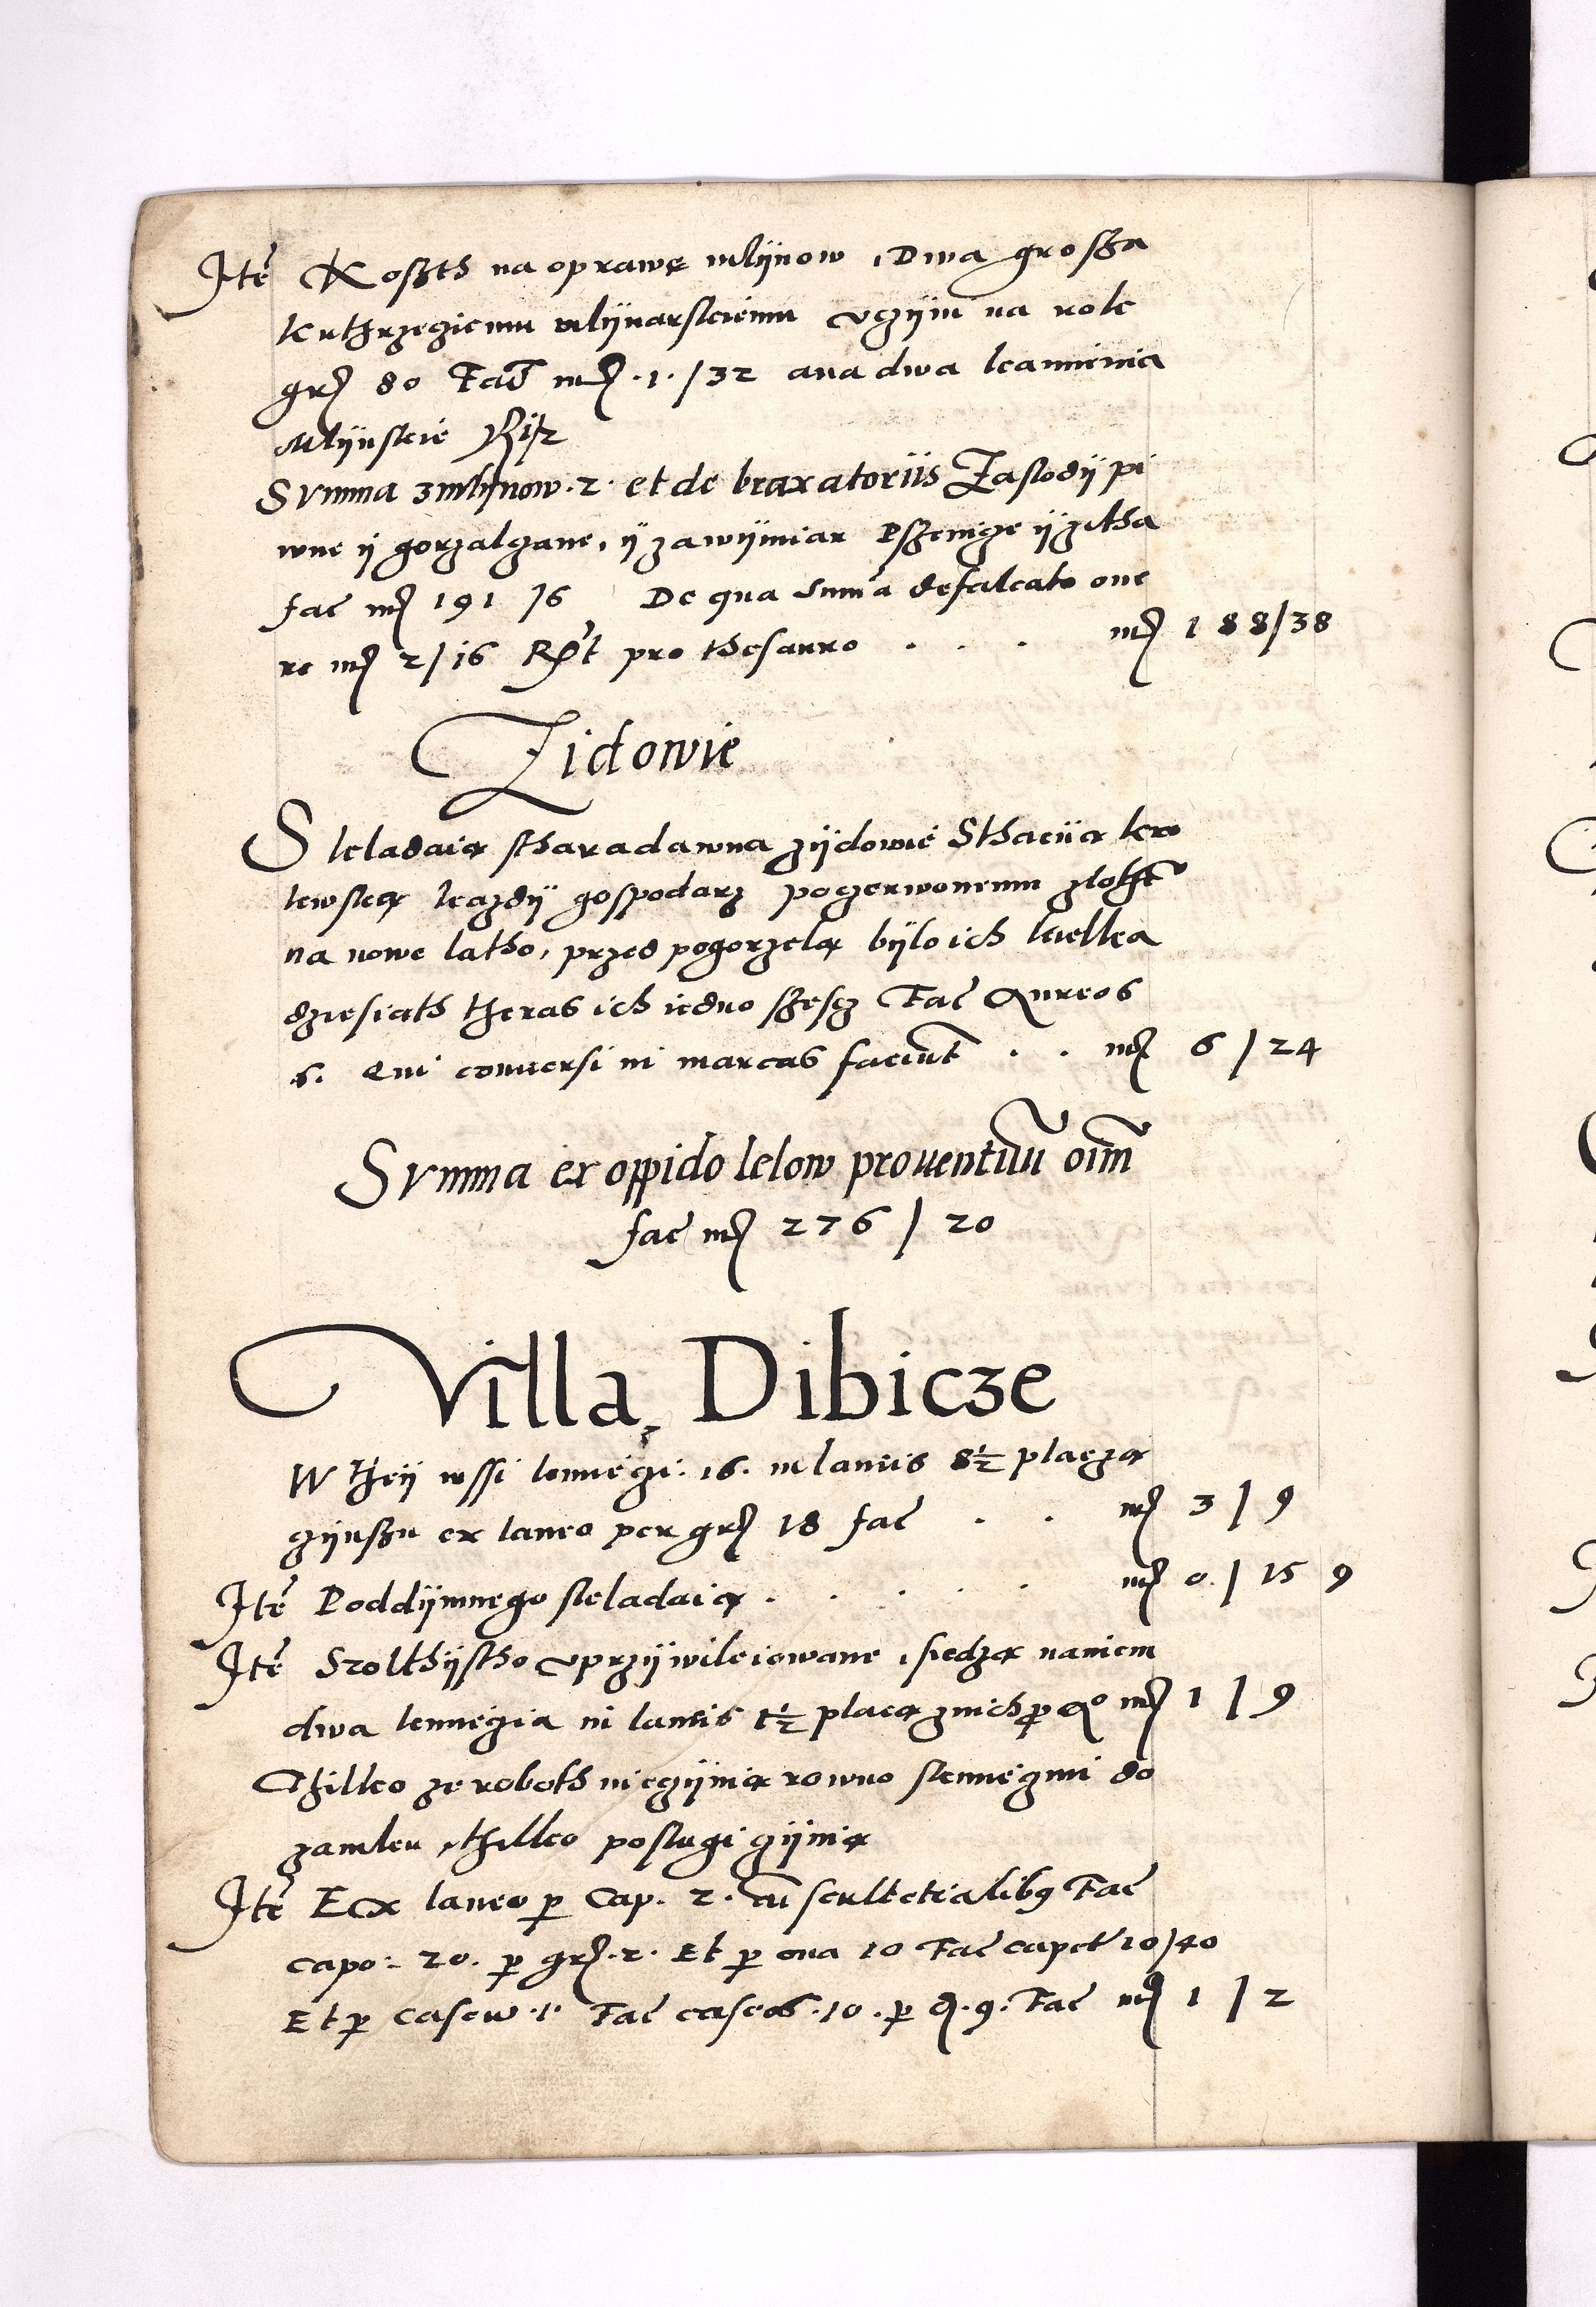 Ité Koszth na oprawę mlÿnow, Dwa grosza
kuthrzeziemu mlÿnarskiemu vczÿni na rok
grʒ 80 Faĉ mʒ .1. / 32 a na dwa kamienia
Mlÿnskie
Svmma zmlÿnow .2. et de braxatoriis Zaslodÿ pi
wne ÿ gorzalczane, ÿ zawÿmiar Pszenicze ÿ zitha
fac mʒ 191 / 6 De qua suma defalcato one
re mʒ 2 / 16 Rx̃t pro thesauro . . . mʒ 188/38
Zidowie
Skladaią sharadawna zÿdowie Sthaciią kro
lewską kazdÿ gospodarz poczerwonemu zlothĉ
na nowe latho, przed pogorzelą bÿlo ich kielka
dziesiąth theras ich iedno szescz Fac Aureos
6. Qui conuersi in marcas faciunt . . mʒ 6 / 24
Svmma ex oppido lelow prouentuū oim̄
fac mʒ 276 / 20
Villa Dibicze
W theÿ wssi kmieczi: 16. in laneis 8½ placzą
czÿnszu ex laneo per grʒ 18 fac . . mʒ 3 / 9
Ité Poddÿmnego skladaią . . . . . mʒ 0. / 15 9
Ité Szolthÿstho vprzÿwileiowane, siedzą naniem
dwa kmieczia in laneis 1½ placą znich p̱ Aº mʒ 1 / 9
Thilko ze roboth nieczÿnią rowno skmieczmi do
zamku, thilko poslugi czÿnią
Ité Ex laneo p̱ Cap. 2. cū scultetialibꝰ Fac
capo: 20. p̱ grʒ .2. Et p̱ oua 10 Fac capet 10/40
Et p̱ Caseu .1. Fac caseos .10. p̱ ꝗ. 9. Fac mʒ 1 / 2